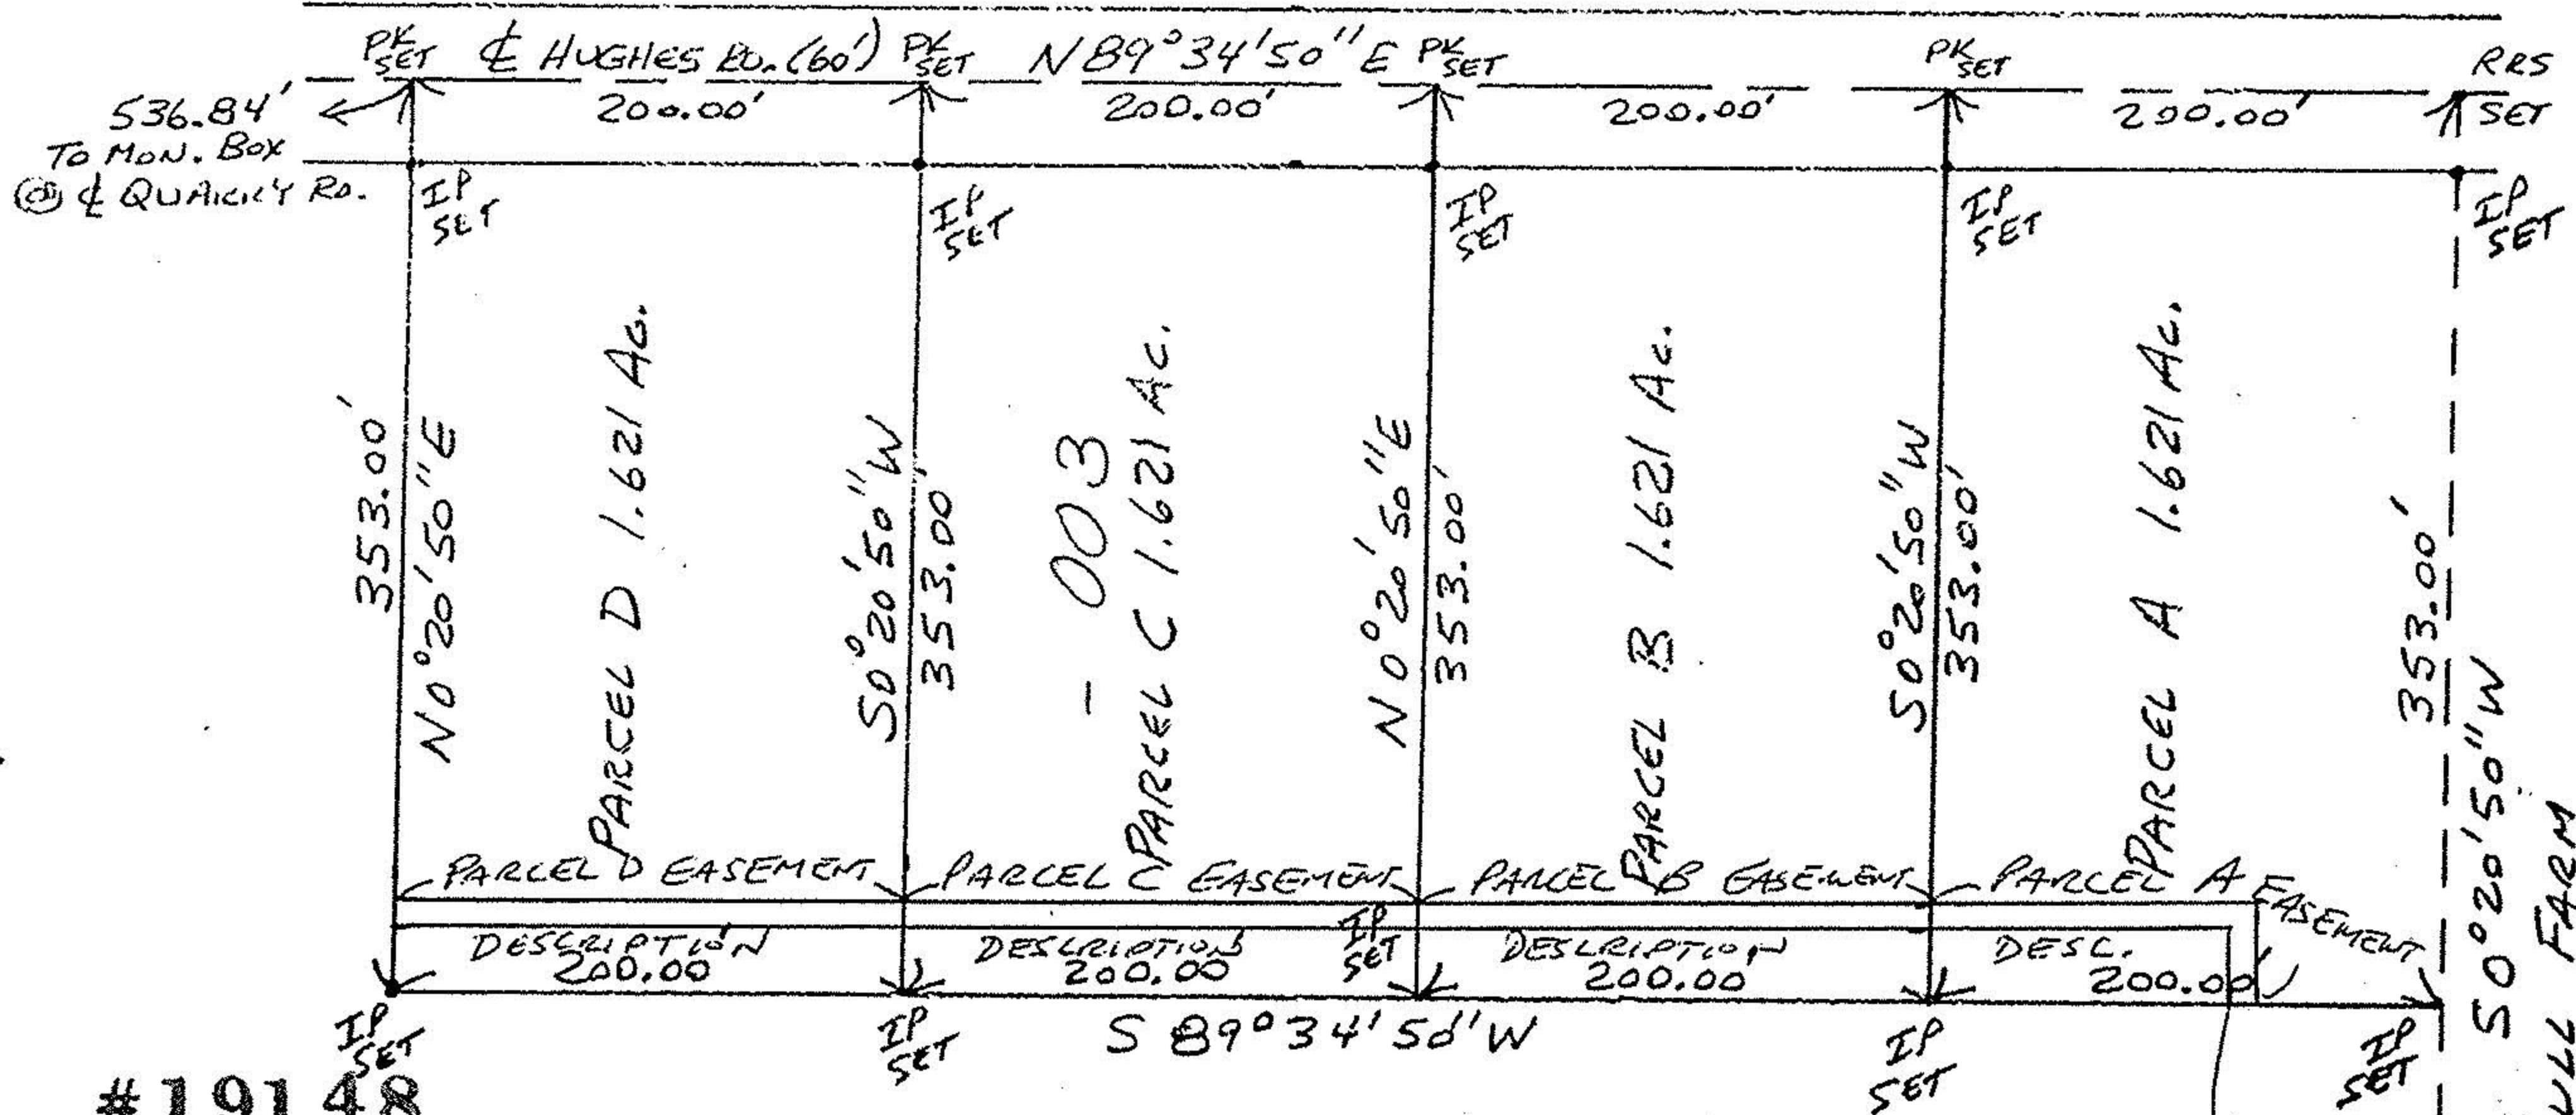 PK SET ℄ HUGHES RD. (60') PK SET N 89°34'50" E PK SET PK SET RRS SET
536.84' 200.00' 200.00' 200.00' 200.00'
TO MON. BOX
@ ℄ QUARRY RD.
IP SET IP SET IP SET IP SET IP SET
353.00'
N 0°20'50" E
PARCEL D 1.621 AC.
S 0°20'50" W
353.00'
- 003
PARCEL C 1.621 AC.
N 0°20'50" E
353.00'
PARCEL B 1.621 AC.
S 0°20'50" W
353.00'
PARCEL A 1.621 AC.
353.00'
S 0°20'50" W
FARM
PARCEL D EASEMENT PARCEL C EASEMENT PARCEL B EASEMENT PARCEL A EASEMENT
DESCRIPTION DESCRIPTION IP SET DESCRIPTION DESC.
200.00 200.00 200.00 200.00'
IP SET IP SET S 89°34'50" W IP SET IP SET
#19148